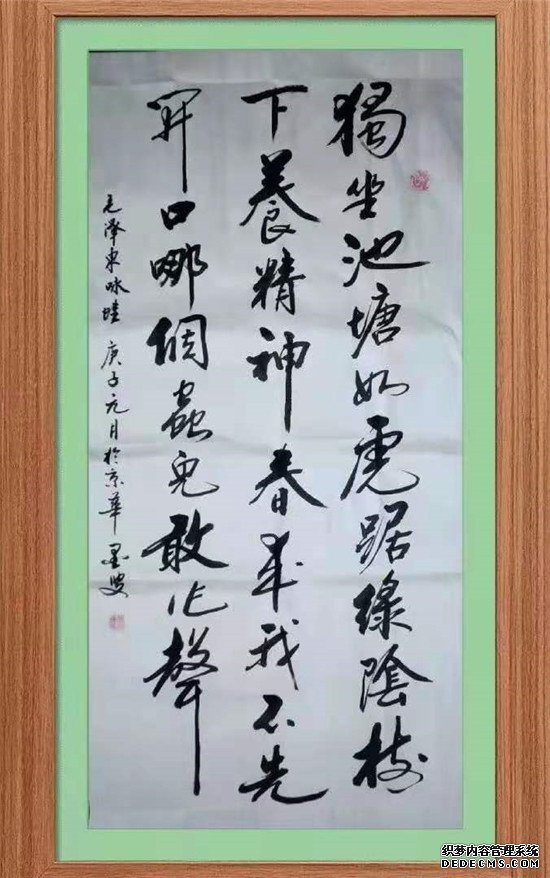 獨坐池塘如虎踞綠陰樹
下養精神春來我不先
開口哪個蟲兒敢作聲
毛澤東咏蛙 庚子元月於京華 墨叟
织梦内容管理系统
DEDECMS.COM